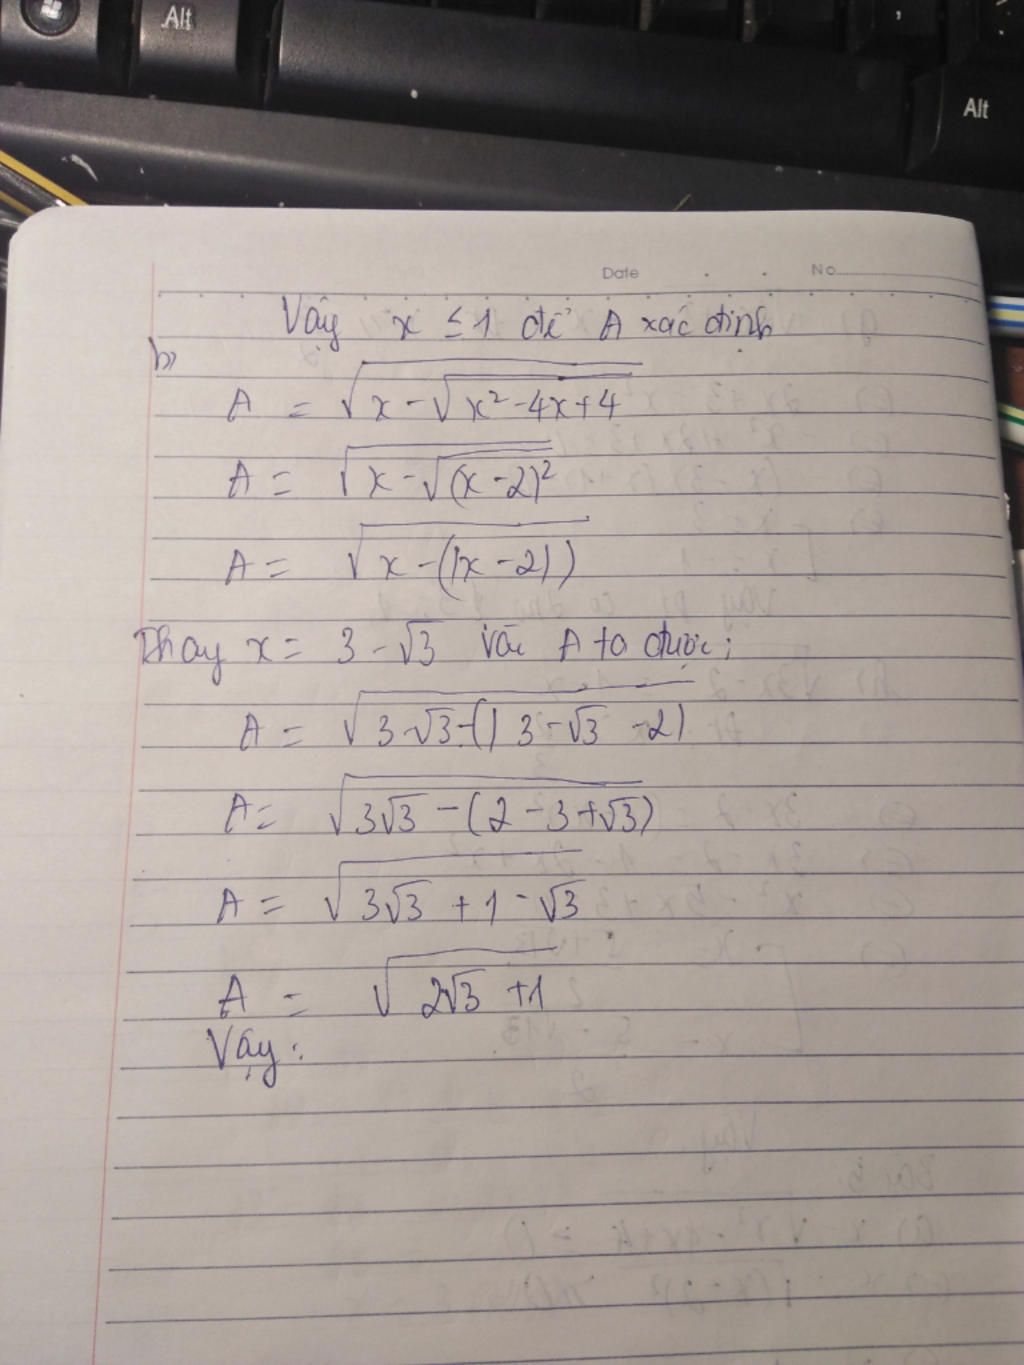 Alt
Alt
Date
No
Vậy x ≤ 1 để A xác định
b)
A = √(x - √(x² - 4x + 4))
A = √(x - √((x - 2)²))
A = √(x - (|x - 2|))
Thay x = 3 - √3 vào A ta được:
A = √(3 - √3 - (| 3 - √3 - 2|)
A = √(3√3 - (2 - 3 + √3))
A = √(3√3 + 1 - √3)
A = √(2√3 + 1)
Vậy: